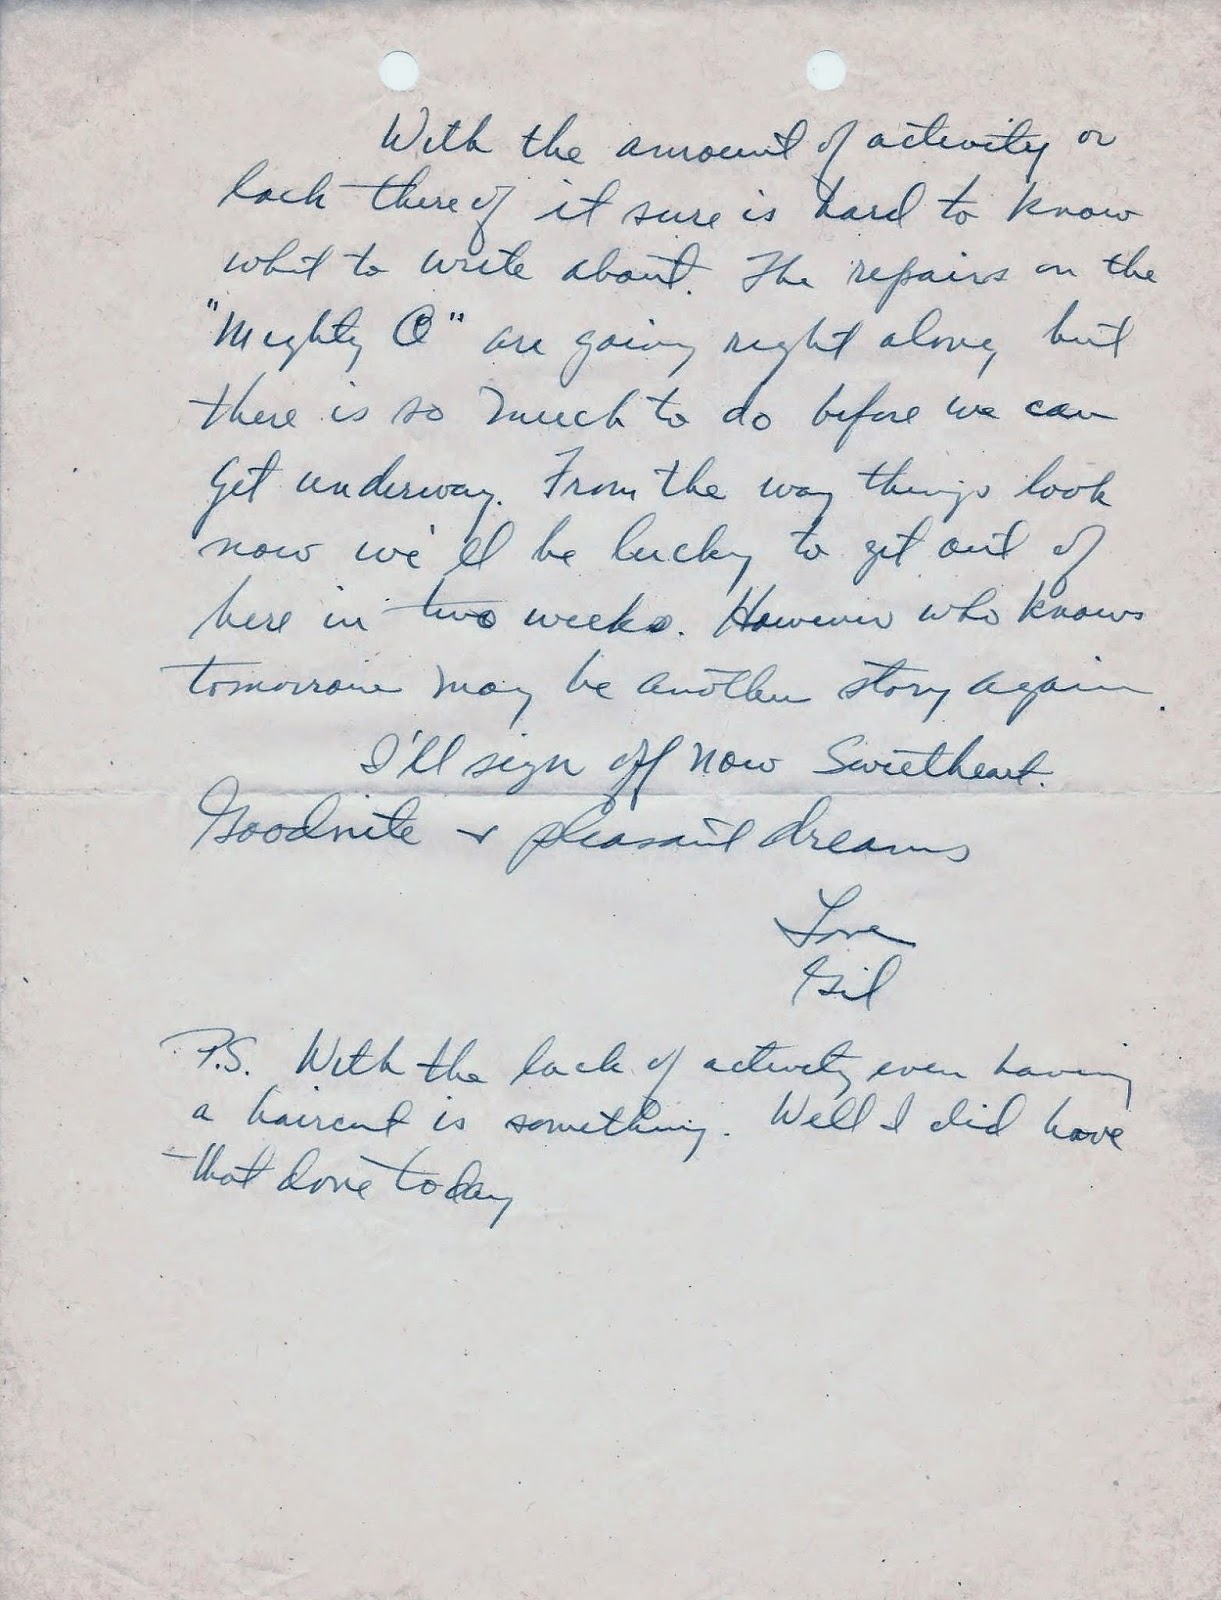 With the amount of activity or
lack there of it sure is hard to know
what to write about. The repairs on the
"Mighty O" are going right along but
there is so much to do before we can
get underway. From the way things look
now we'll be lucky to get out of
here in two weeks. However who knows
tomorrow may be another story again.
I'll sign off now Sweetheart.
Goodnite + pleasant dreams
Love
Gil
P.S. With the lack of activity even having
a haircut is something. Well I did have
that done today